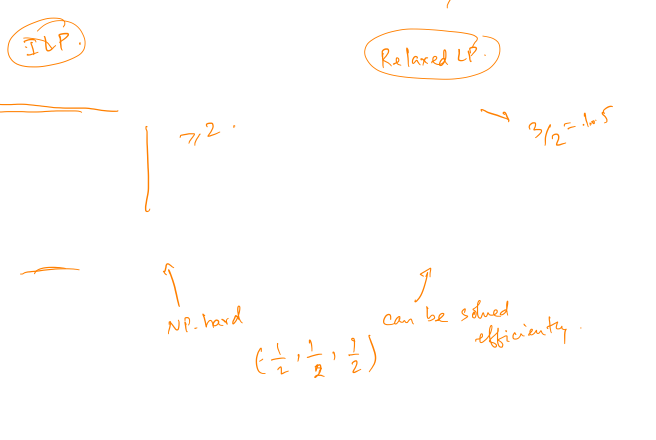 ILP.
Relaxed LP.
≥2.
3/2 = 1.5
NP-hard
can be solved
efficiently.
(1/2, 1/2, 1/2)